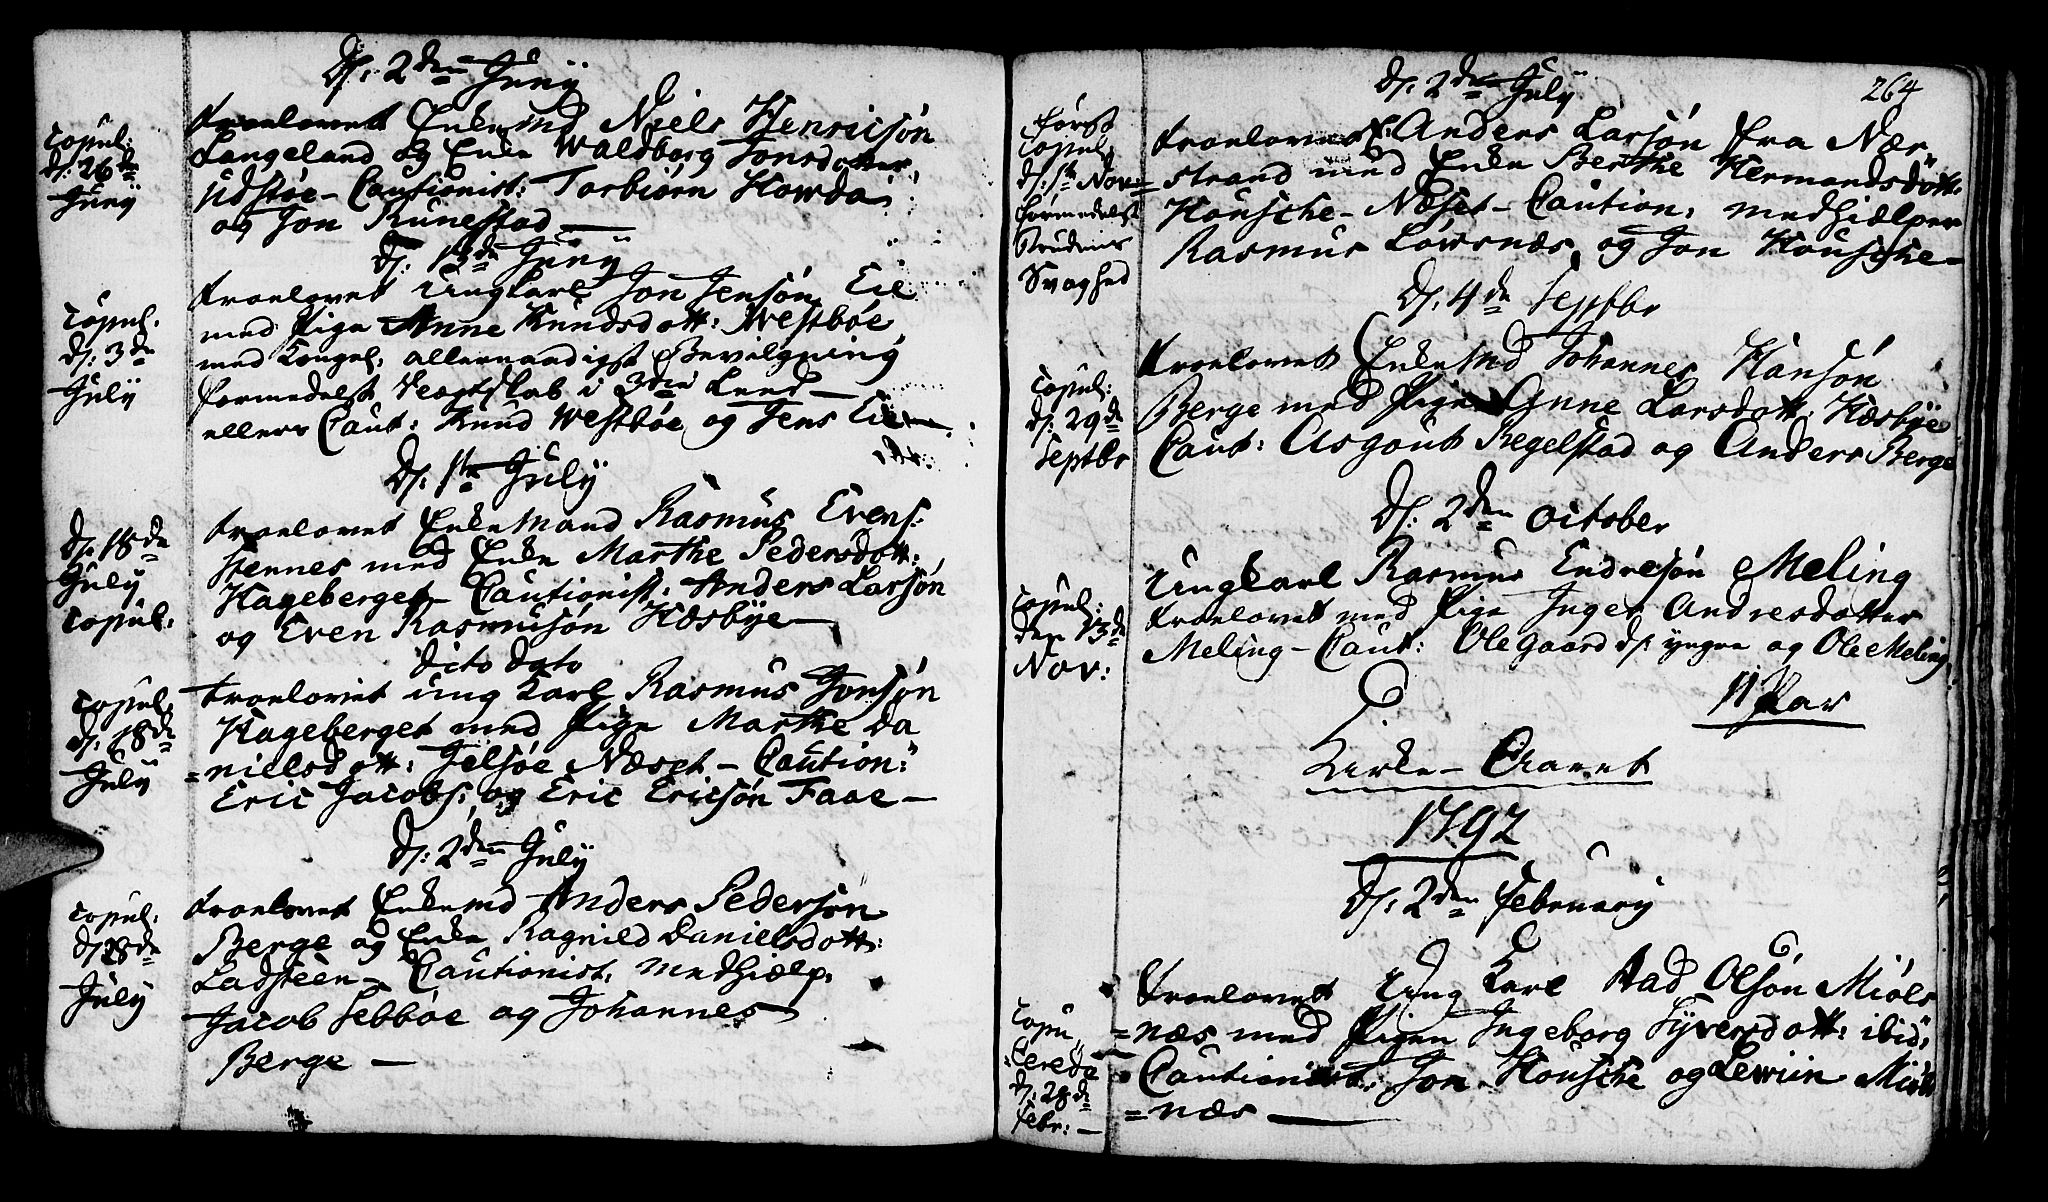 D: 2den Junÿ
Copul:
d: 26de
Junÿ
troelovet Enkemd Niels Henricsøn
Langeland og Enke Waldborg Jonsdotter
Udstøe - Cautionist: Torbiørn Howda
og Jon Runestad —
D: 13de Junÿ
Copul:
d: 3de
Julÿ
troelovet Ungkarl Jon Jensøn Eie
med Pige Anne Knudsdott: Westbøe
med Kongel: allernaadigst Bevilgning
formedelst Slægtskab i 3die Leed —
ellers Caut: Knud Westbøe og Jens Eie
D: 1te Julÿ
d: 18de
Julÿ
Copul:
troelovet Enkemand Rasmus Evens:
Hennes med Enke Marthe Pedersdott:
Hageberget - Cautionist: Anders Larsøn
og Even Rasmusøn Hæsbye —
dito dato
Copul:
d: 18de
Julÿ
Troelovet ung Karl Rasmus Jonsøn
Hageberget med Pige Marthe Da
=nielsdott: Jelsøe Næset - Caution:
Eric Jacobs: og Eric Ericsøn Faae —
D: 2den Julÿ
Copul:
d: 18de
Julÿ
troelovet Enkemd Anders Pedersøn
Berge og Enke Ragnild Danielsdott:
Ladsteen - Cautionist: Medhiælp:
Jacob Sebbøe og Johannes
Berge —
264
D: 2den Julÿ
først
Copul:
d: 1te Nov:
formedelst
Brudens
Svaghed
troelovet E: Anders Larsøn fra Nær
=strand med Enke Berthe Hermandsdott:
Housche - Næset - Caution: Medhiælper
Rasmus Lowsnæs og Jon Housche —
D: 4de Septbr
Copul:
d: 29de
Septbr
troelovet Enkemd Johannes Hansøn
Berge med Pige Anne Larsdott: Hæsbye
Caut: Asgout Regelstad og Anders Berge
D: 2den October
Copul:
den 13de
Nov:
Ungkarl Rasmus Endresøn Meling
troelovet med Pige Inger Andresdotter
Meling - Caut: Ole Gaard d: yngre og Ole Meling
11 Par
Kirke - Aaret
1792
D: 2den February
Copu
=lerede
d: 28de
Febr: —
troelovet Ung Karl Aad Olsøn Miøls
=næs med Pigen Ingeborg Syversdott: ibid:
Cautionist: Jon Housche og Lewiin Miøls
=næs —